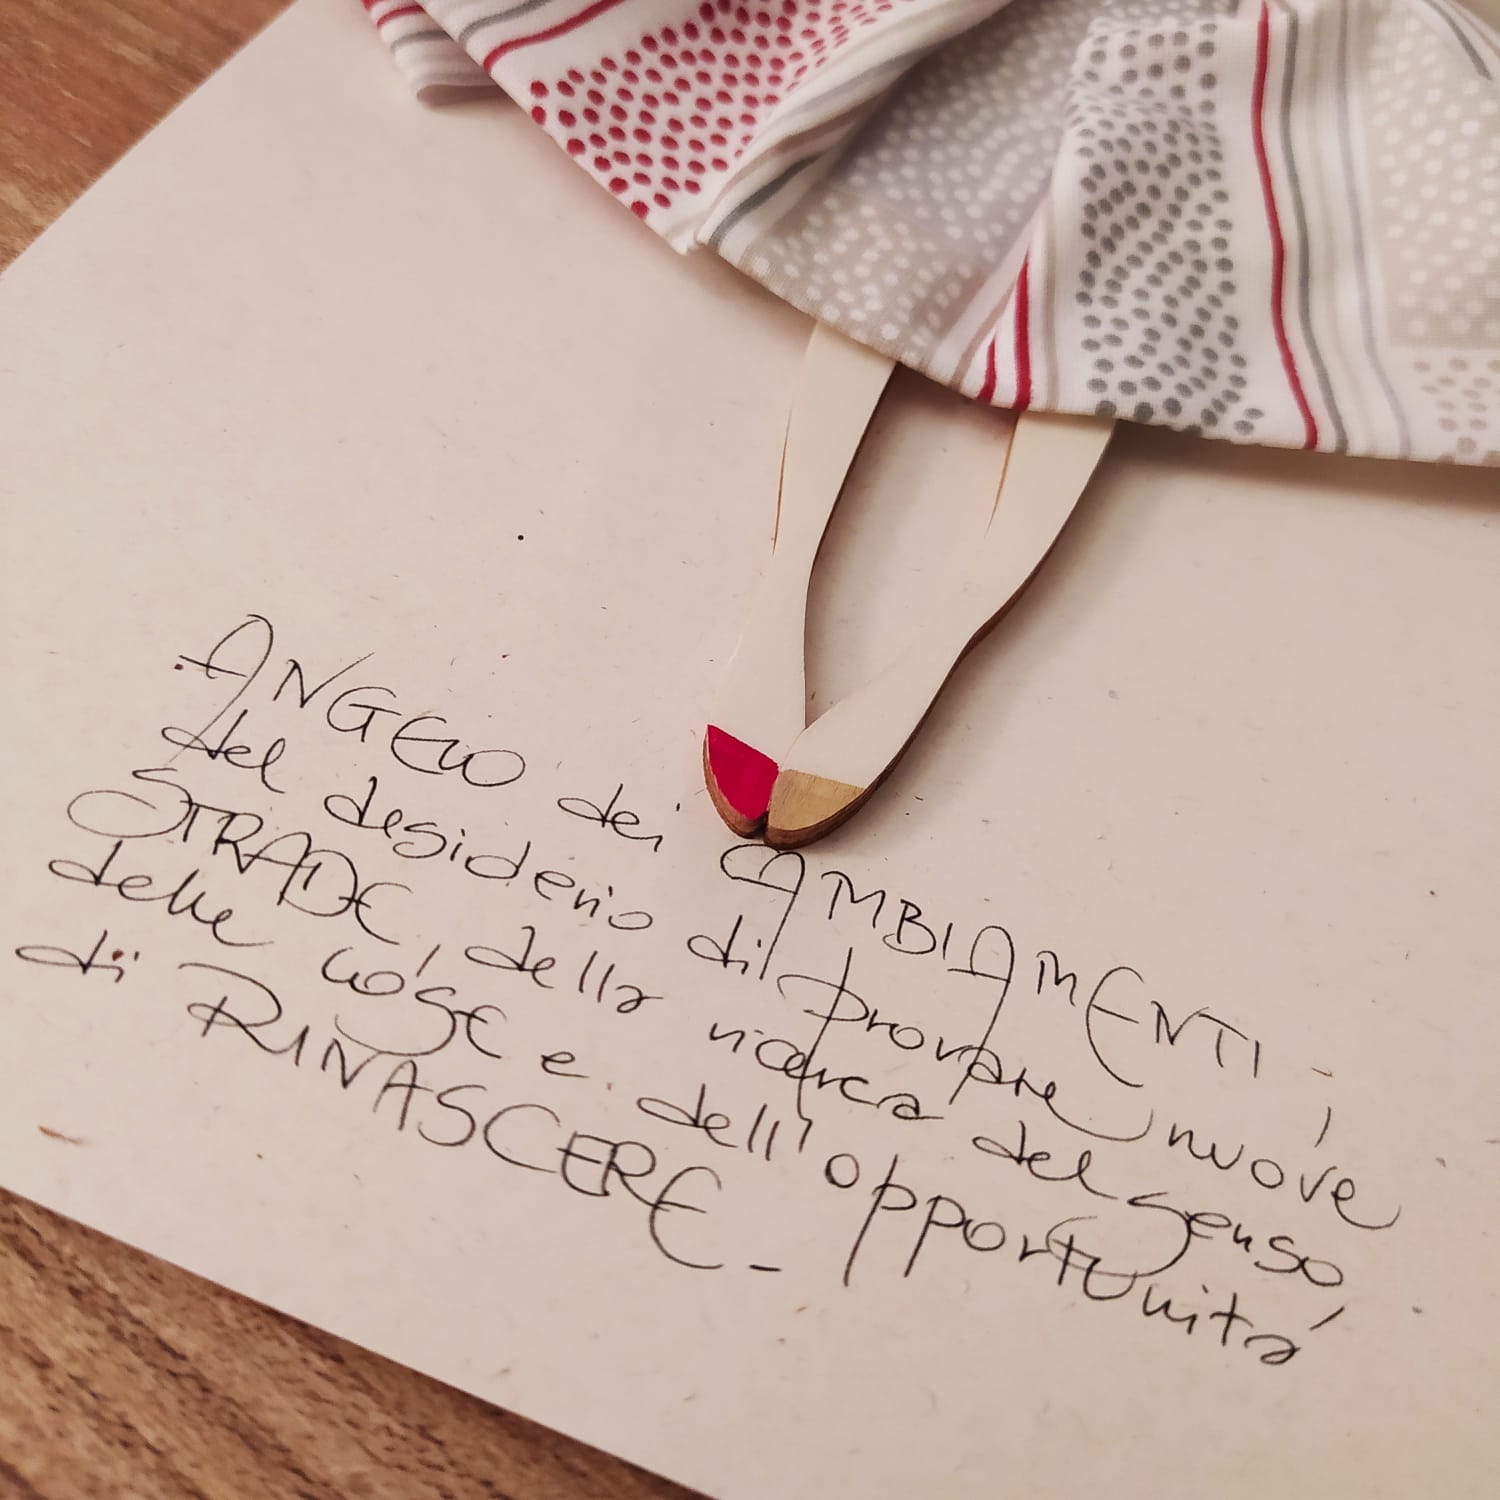 ANGELO dei CAMBIAMENTI,
del desiderio di provare nuove
STRADE, della ricerca del senso
delle cose e dell'opportunità
di RINASCERE -